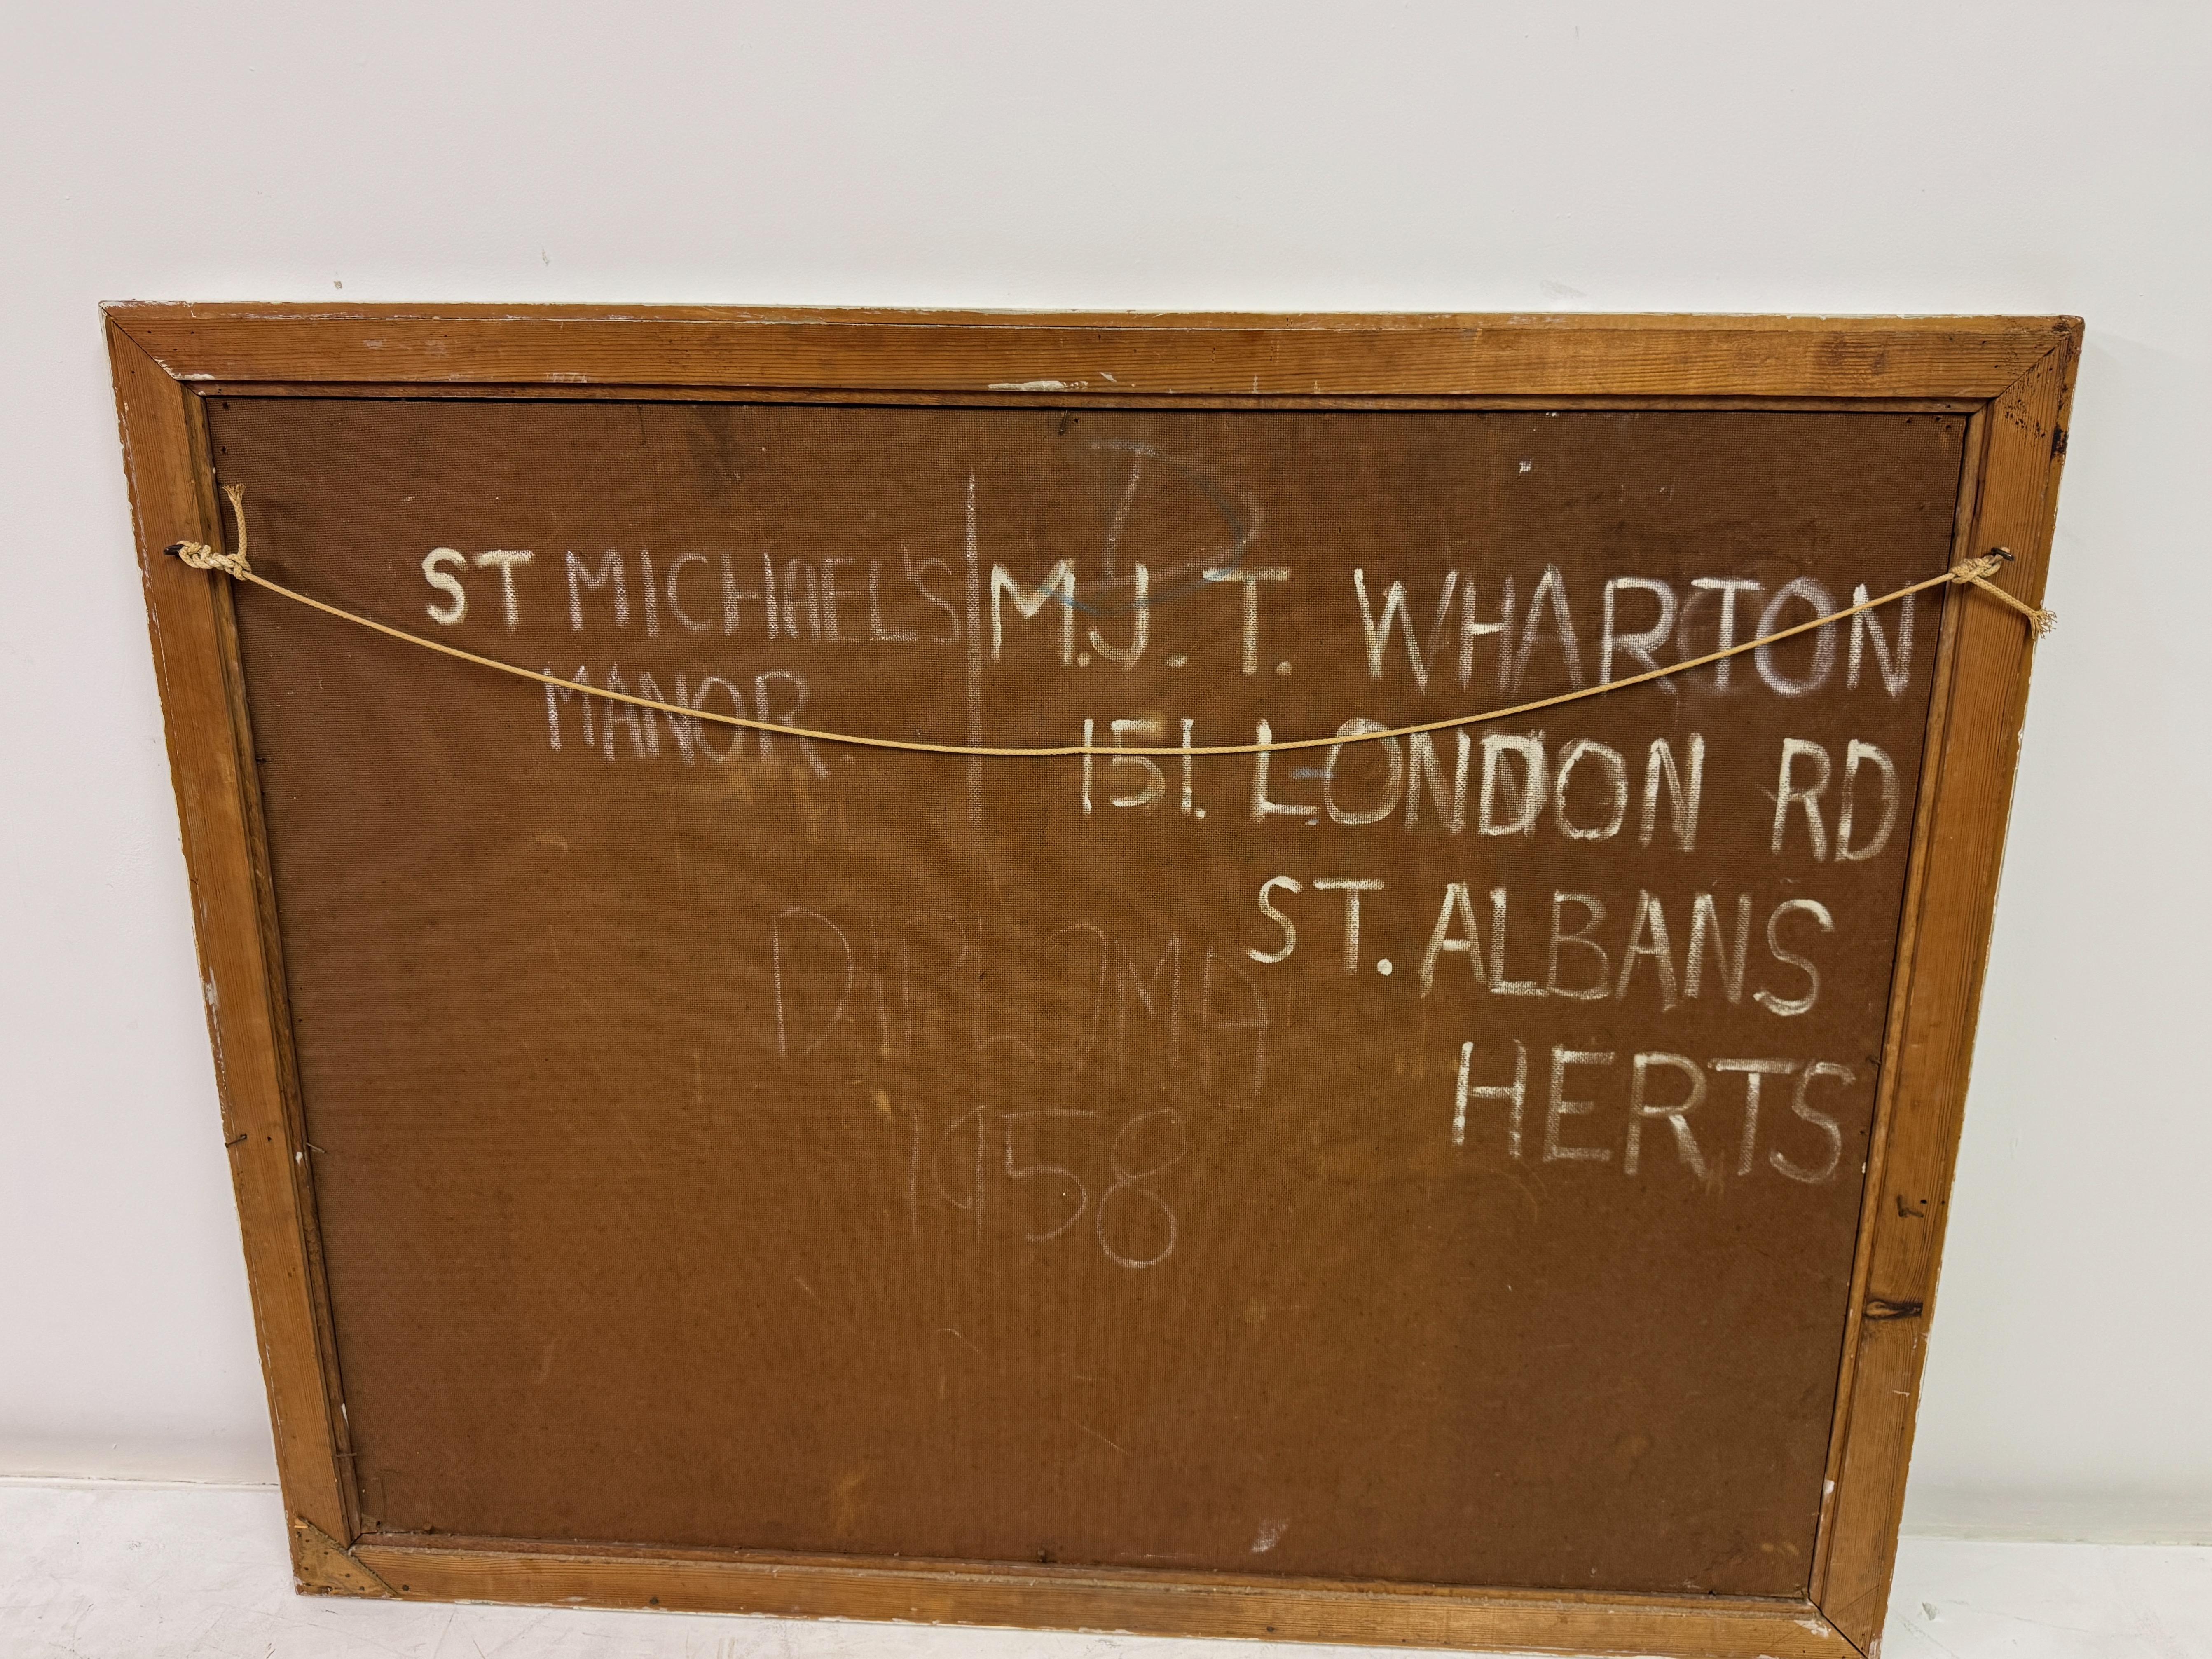 D
ST MICHAEL'S
MANOR
M.J.T. WHARTON
151. LONDON RD
ST. ALBANS
HERTS
DIPLOMA
1958